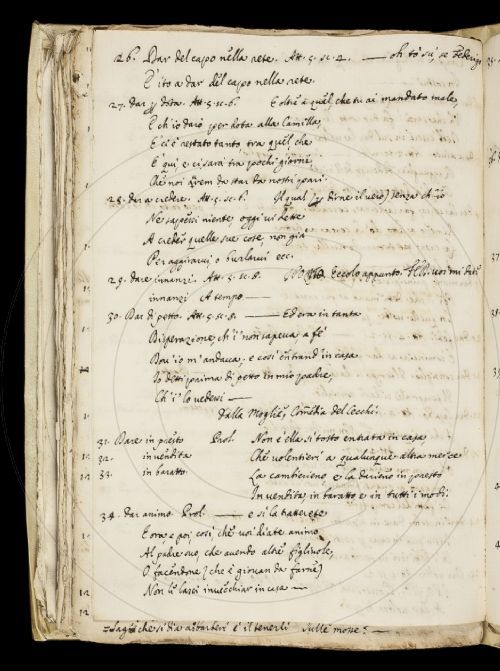 26. Dar del capo nella rete. Att. 5. sc. 4. — oh tò sù, se Federigo
È ito a dar del capo nella rete.
27. dar p dota. Att. 5. sc. 6. E oltre a quel, che tu ai mandato male,
E ch'io darò per dota alla Camilla,
E ci è restato tanto, tra quel, che
È quì, e ci sarà tra pochi giorni,
Che noi da star da nostri pari.
28. dar a credere. Att. 5. sc. 6. Il qual (p dirne il vero) senza ch'io
Ne sapessi niente, oggi vi dette
A creder quelle sue cose, non già
Per aggirarvi, o burlarvi ecc.
29. dare innanzi. Att. 5. sc. 8. Eccolo appunto. voi mi date
innanzi A tempo —
30. Dar di petto. Att. 5. sc. 8. — Ed era in tanta
Disperazione, ch'i' non sapeva a fè
Dov'io m'andava, e così entrand' in casa
Io detti prima di petto in mio padre,
Ch'i' lo vedessi —
Dalla Moglie, Comedia del Cecchi.
31. Dare in presto Prol. Non è ella sì tosto entrata in casa,
32. in vendita Che volentieri a qualunque altra merce
33. in baratto. La cambierieno, e la darieno in presto
In vendita, in baratto e in tutti i modi.
34. dar animo Prol. — e si la tratterete
E ora, e poi, così che voi diate animo
Al padre suo, che avendo altre figliuole,
O facendone (che è giovan da farne)
Non le lasci invecchiar in casa —
che si dia a è il tenerli sulle mosse? —